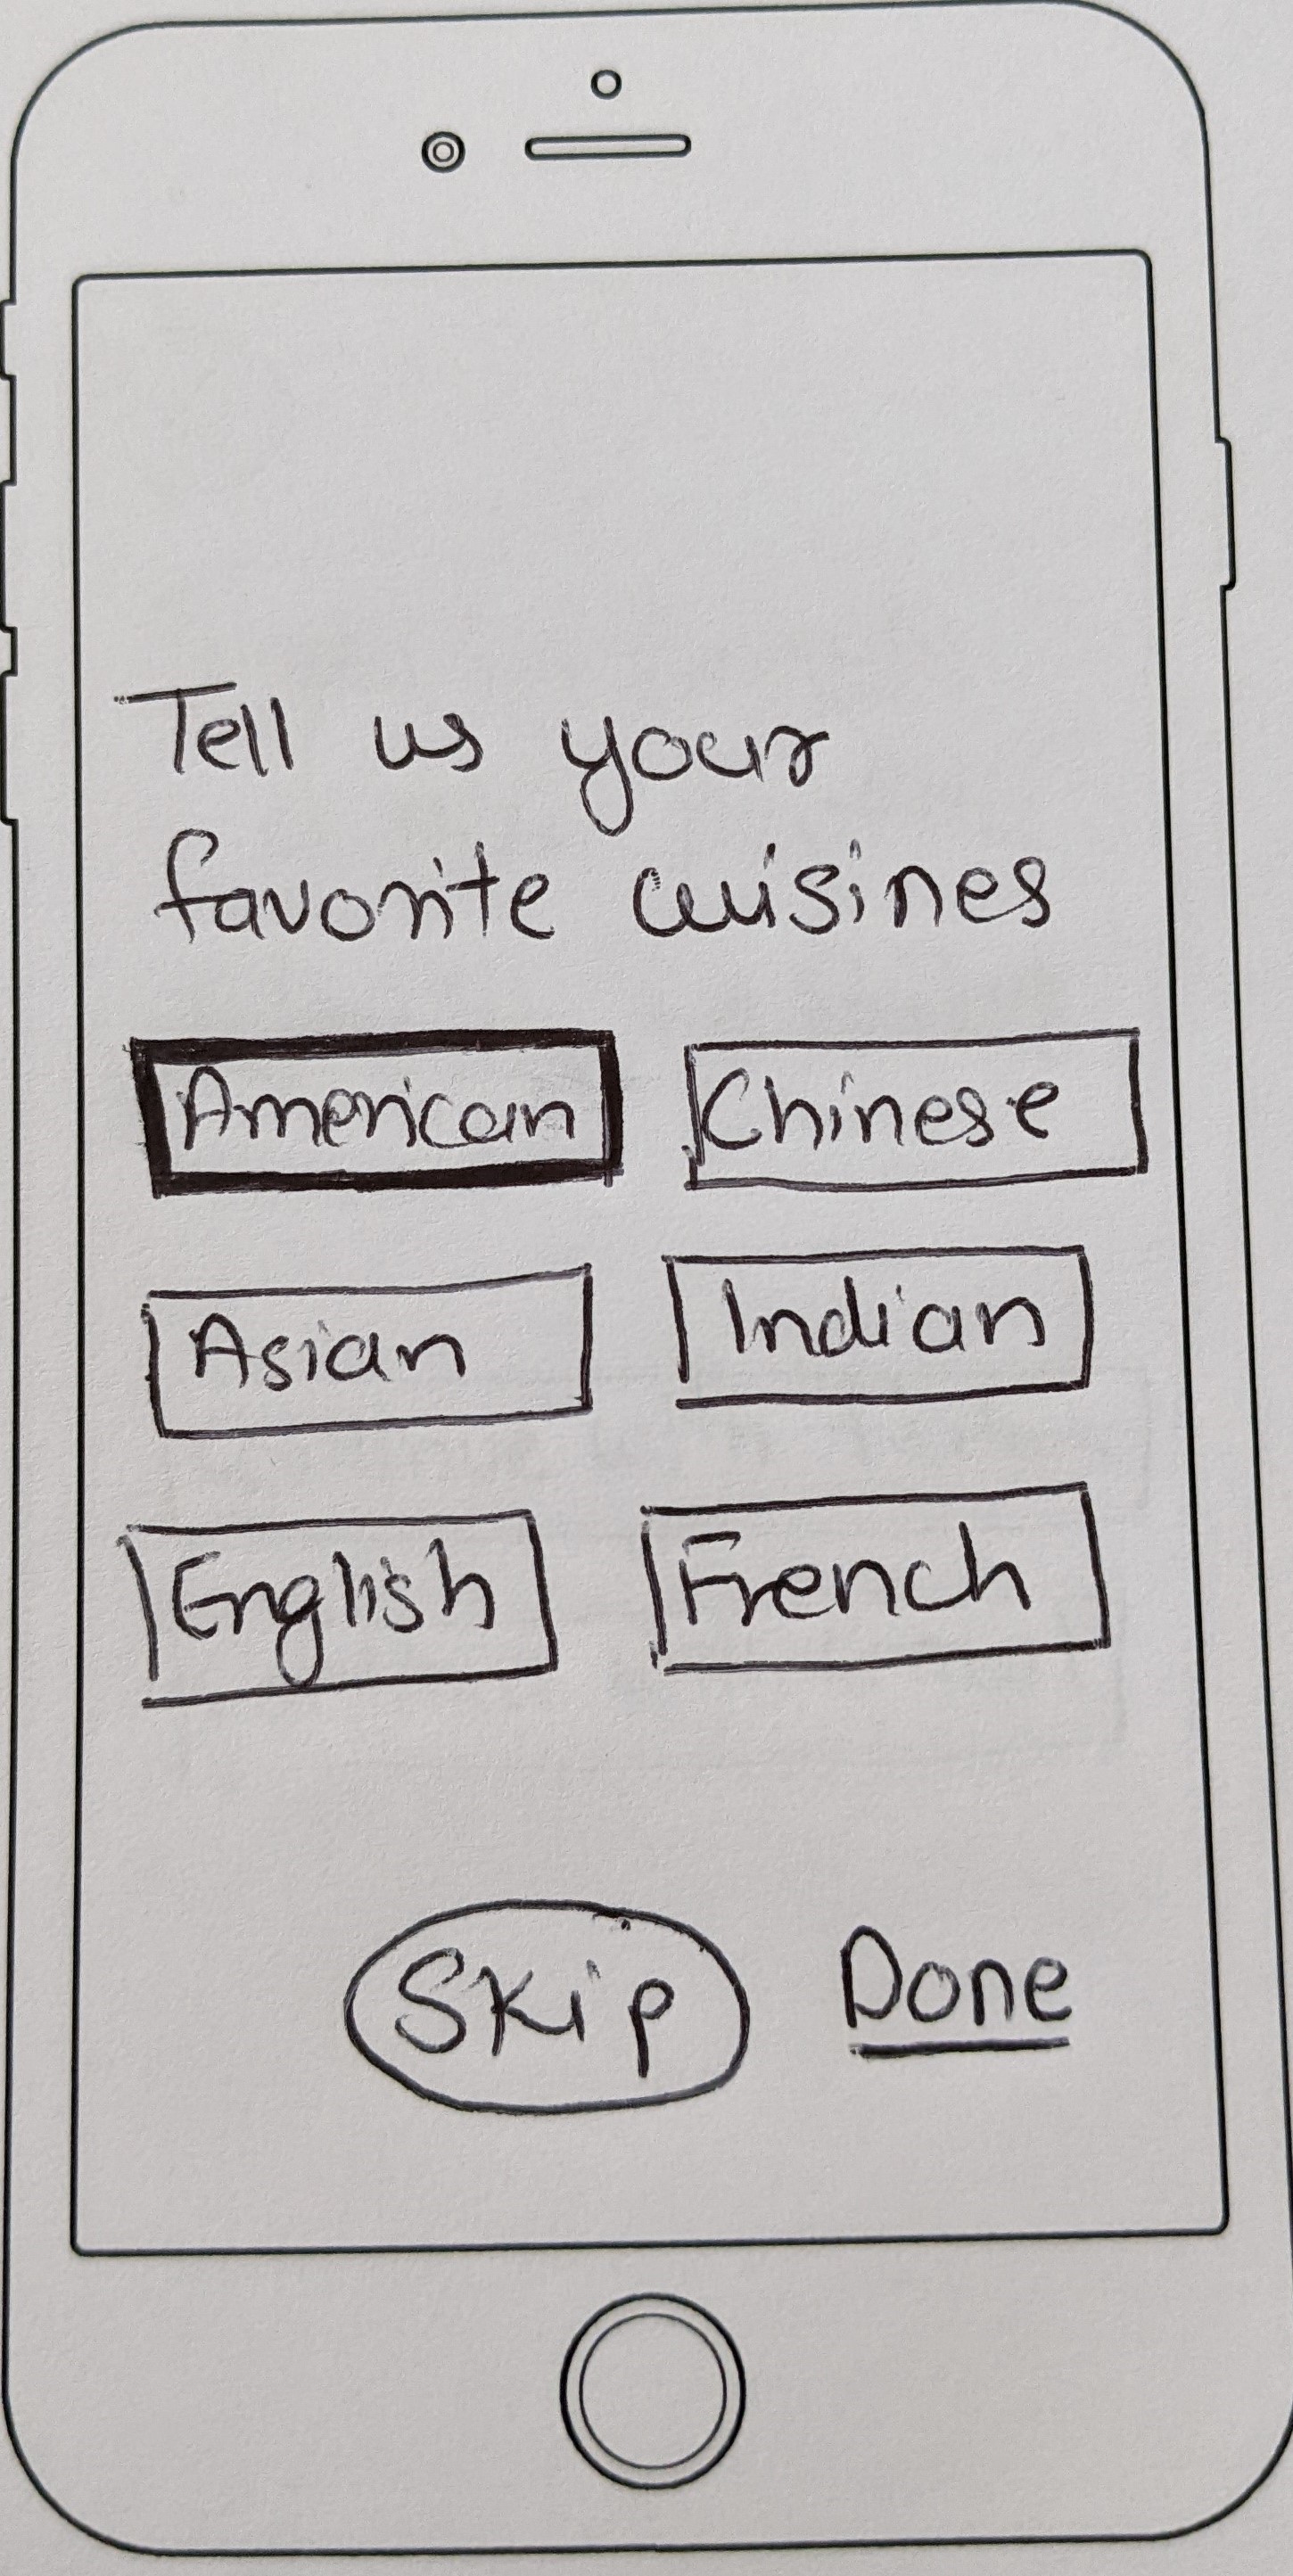 Tell us your
favorite cuisines
American Chinese
Asian Indian
English French
Skip Done